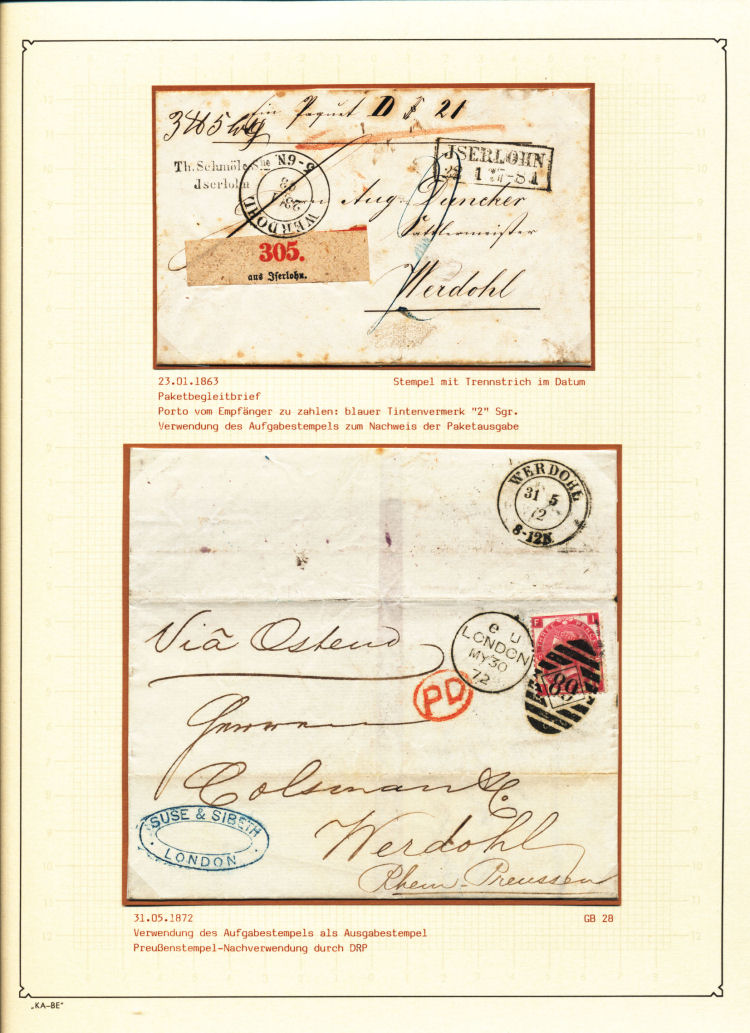 Ein Paquet D F 21
Th. Schmöle Sne
Jserlohn
WERDOHL 5-6N.
JSERLOHN
22 1 7-8
Herrn Aug. Duncker
Sattlermeister
305.
aus Iserlohn.
Werdohl
2
23.01.1863 Stempel mit Trennstrich im Datum
Paketbegleitbrief
Porto vom Empfänger zu zahlen: blauer Tintenvermerk "2" Sgr.
Verwendung des Aufgabestempels zum Nachweis der Paketausgabe
WERDOHL
31 5
72
8-12N.
Viâ Ostend
e u
LONDON
MY 30
72
F I
THREE PENCE
89
PD
Herren
Colsman & C.
SUSE & SIBETH
LONDON
Werdohl
Rhein-Preussen
31.05.1872 GB 28
Verwendung des Aufgabestempels als Ausgabestempel
Preußenstempel-Nachverwendung durch DRP
„KA-BE"